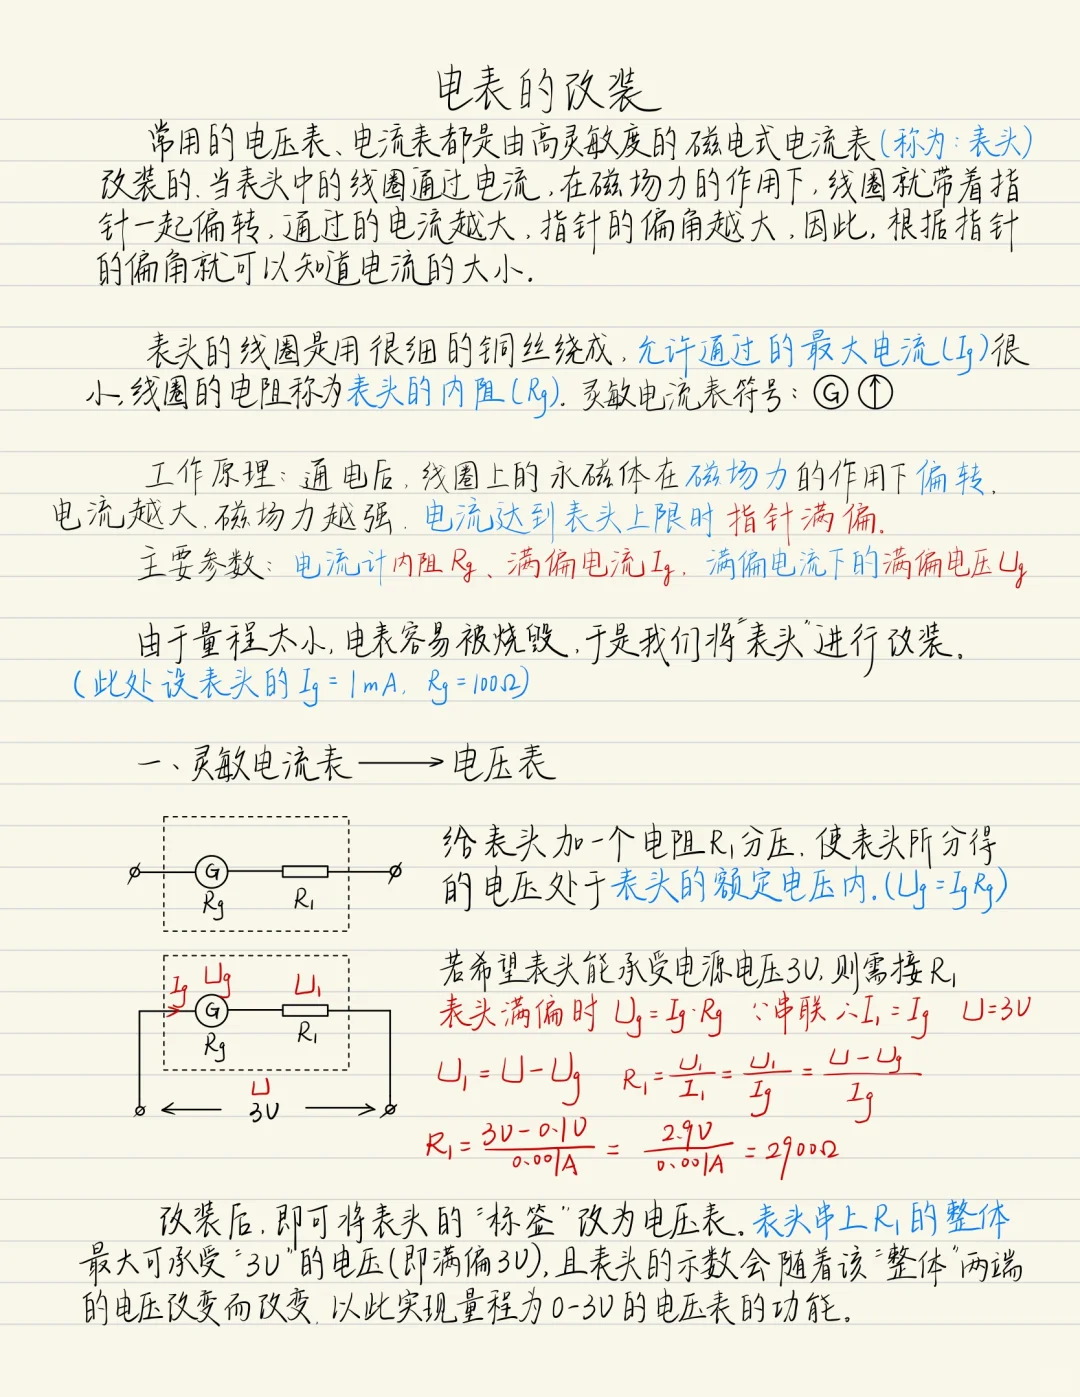 电表的改装
常用的电压表、电流表都是由高灵敏度的磁电式电流表(称为:表头)
改装的.当表头中的线圈通过电流,在磁场力的作用下,线圈就带着指
针一起偏转,通过的电流越大,指针的偏角越大,因此,根据指针
的偏角就可以知道电流的大小.
表头的线圈是用很细的铜丝绕成,允许通过的最大电流(Ig)很
小,线圈的电阻称为表头的内阻(Rg).灵敏电流表符号: Ⓖ
工作原理:通电后,线圈上的永磁体在磁场力的作用下偏转,
电流越大.磁场力越强.电流达到表头上限时指针满偏.
主要参数:电流计内阻Rg、满偏电流Ig,满偏电流下的满偏电压Ug
由于量程太小,电表容易被烧毁,于是我们将“表头”进行改装.
(此处设表头的Ig=1mA, Rg=100Ω)
一、灵敏电流表 → 电压表
G
Rg R₁
给表头加一个电阻R₁分压.使表头所分得
的电压处于表头的额定电压内.(Ug=IgRg)
Ig Ug U₁
G
Rg R₁
U
3V
若希望表头能承受电源电压3V,则需接R₁
表头满偏时 Ug=Ig·Rg ∵串联∴I₁=Ig U=3V
U₁=U-Ug R₁=U₁/I₁=U₁/Ig=(U-Ug)/Ig
R₁=(3V-0.1V)/0.001A=2.9V/0.001A=2900Ω
改装后,即可将表头的“标签”改为电压表.表头串上R₁的整体
最大可承受“3V”的电压(即满偏3V),且表头的示数会随着该“整体”两端
的电压改变而改变.以此实现量程为0-3V的电压表的功能.